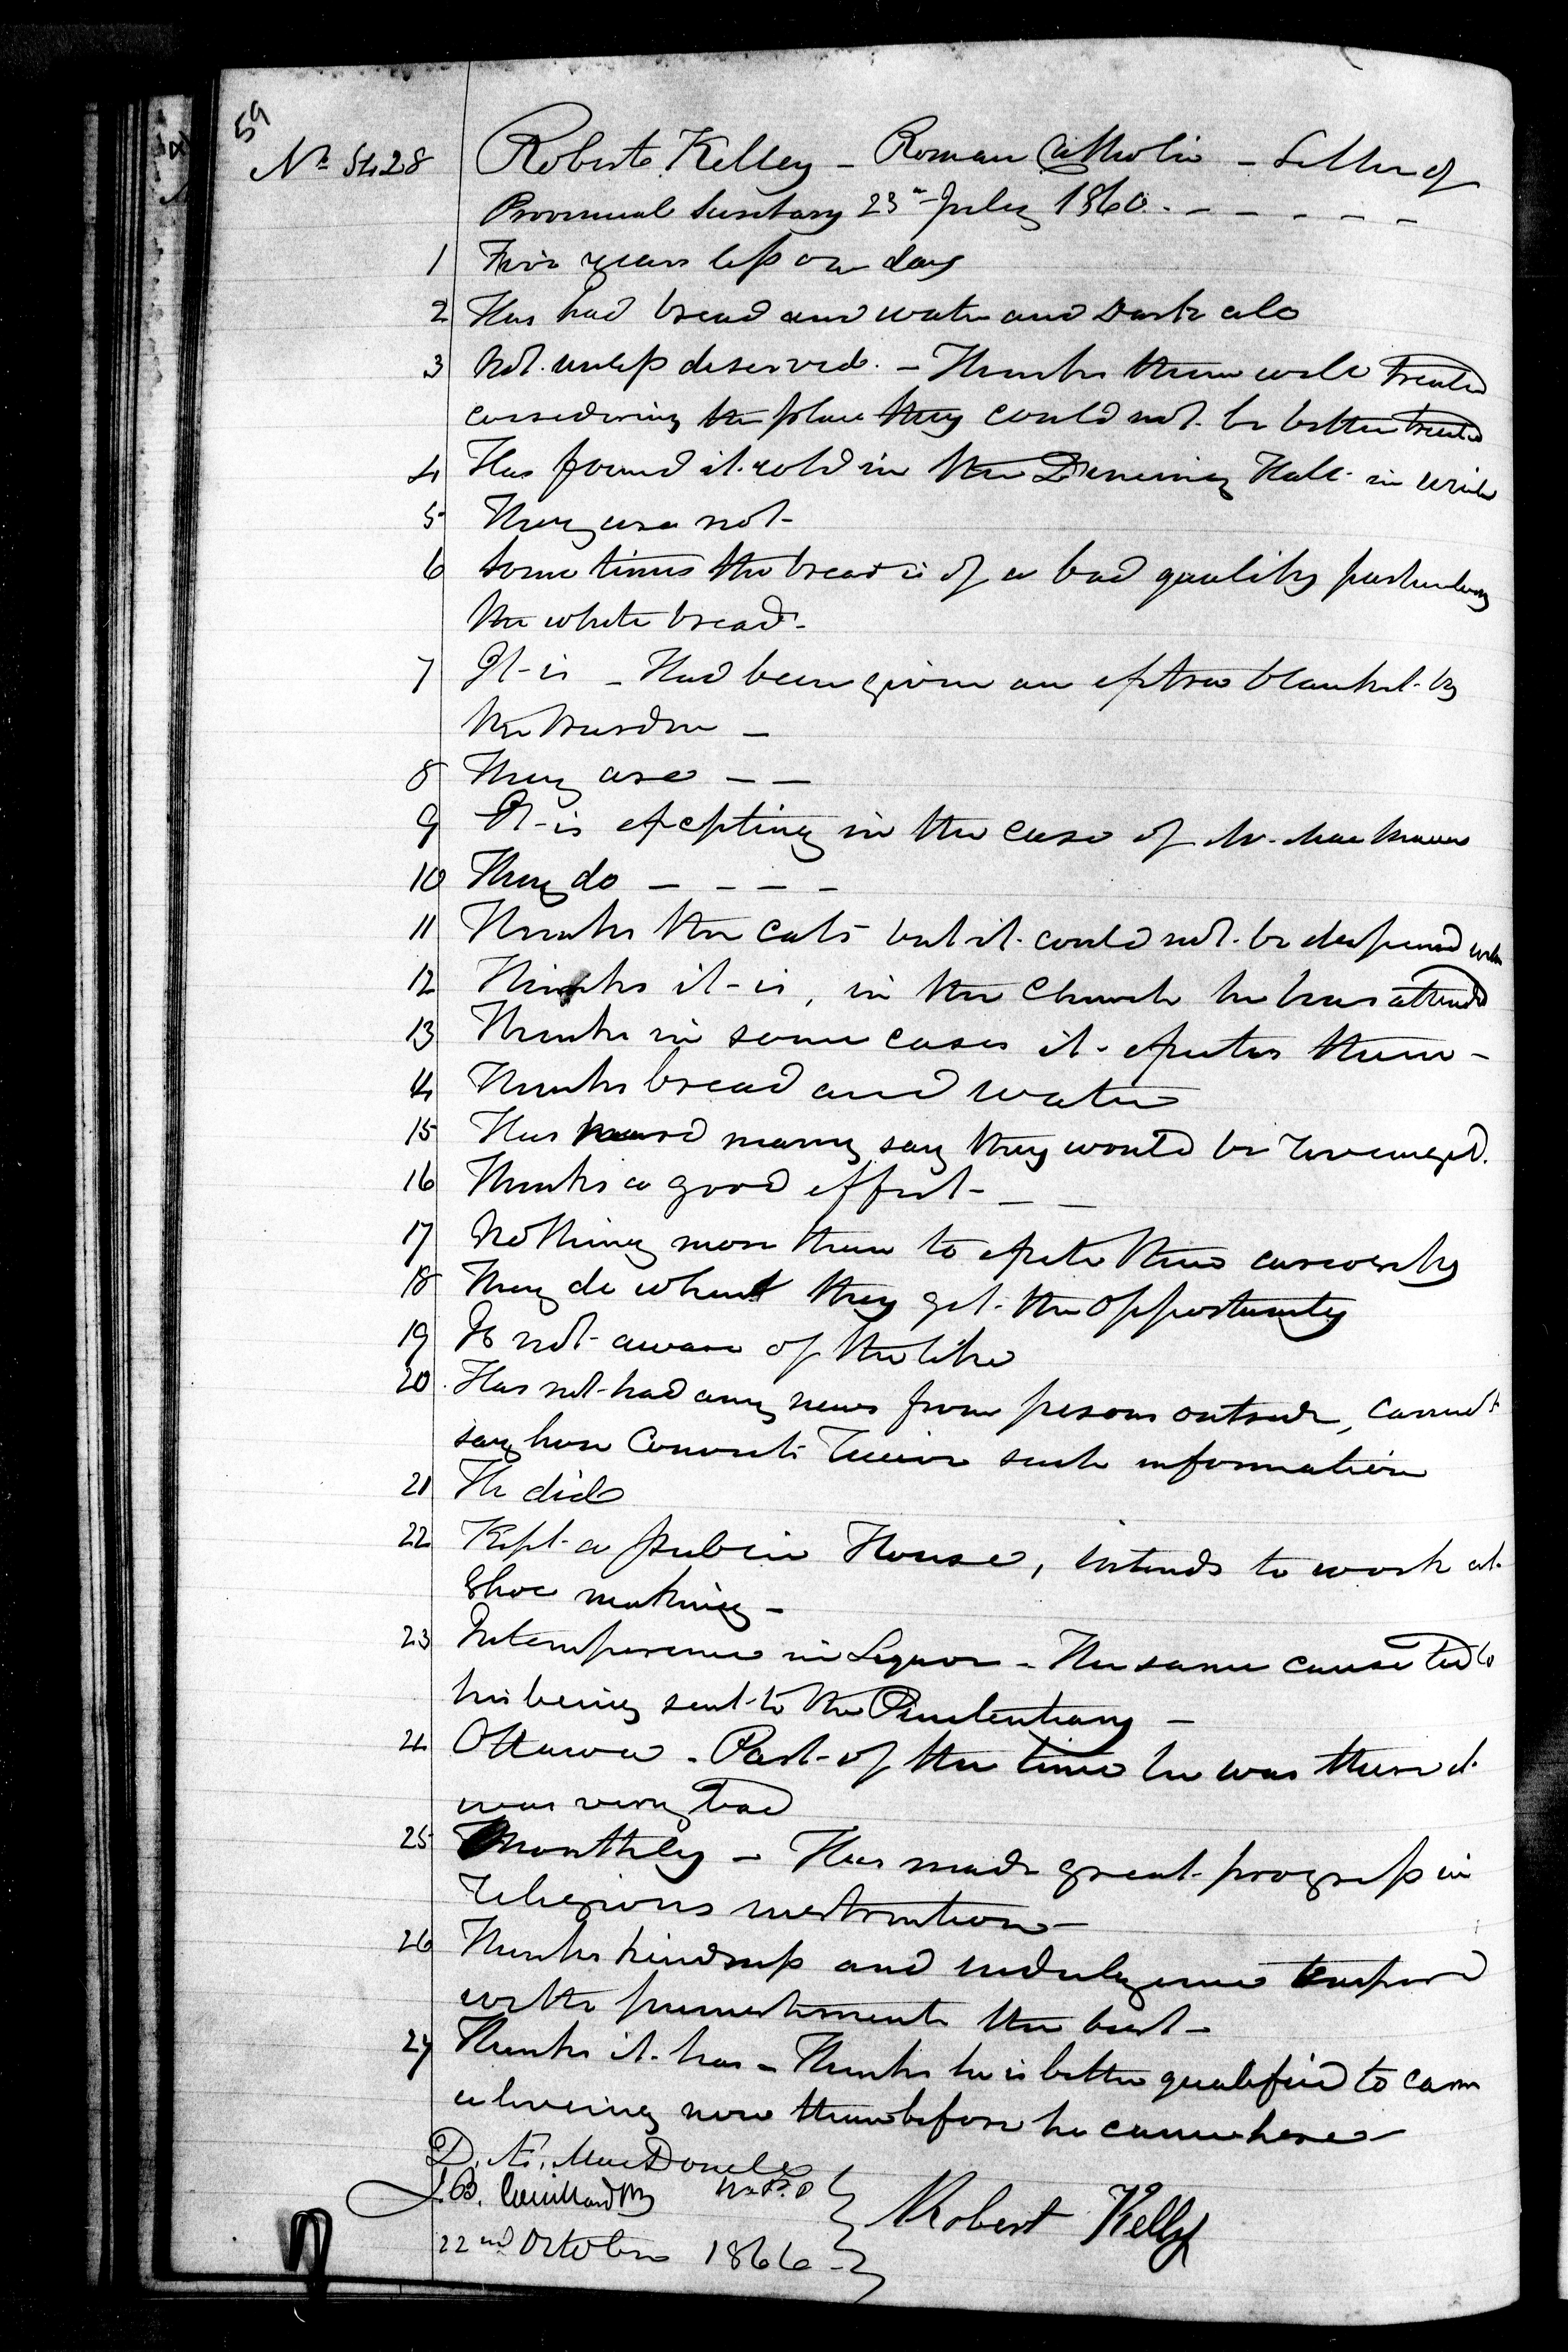 59
No 5428 Roberts Kelley - Roman Catholic - Letter of
Provincial Secretary 23rd July 1860. - - - - -
1 Five years less one day
2 Has had bread and water and Dark also
3 Not unless deserved. - Thinks them well treated
considering the place they could not be better treated
4 Has found it cold in the Dineing Hall in
5 They are not -
6 Some times the bread is of a bad quality particularly
the white bread -
7 It is - Had been given an extra blanket by
the Warden -
8 They are - -
9 It is excepting in the case of Mr.
10 They do - - - -
11 Thinks the cats but it could not be dispensed with
12 Thinks it is, in the Church he has attended
13 Thinks in some cases it excites them -
14 Thinks bread and water
15 Has heard many say they would be revenged.
16 Thinks a good effect - - -
17 Nothing more than to excite their curiosity
18 They do when they get the opportunity
19 Is not aware of the like
20 Has not had any news from persons outside, cannot
say how Convicts receive such information
21 He did
22 Kept a public House, intends to work at
Shoe making -
23 Intemperance in Liquor - The same cause led to
his being sent to the Penitentiary -
24 Ottawa - Part of the time he was there it
was very bad
25 Monthly - Has made great progress in
religious instruction -
26 Thinks kindness and indulgence
with punishments the best -
27 Thinks it has - Thinks he is better qualified to earn
a liveing now than before he came here -
D. Æ. MacDonell
J. B.
22nd October 1866 -
Robert Kelly